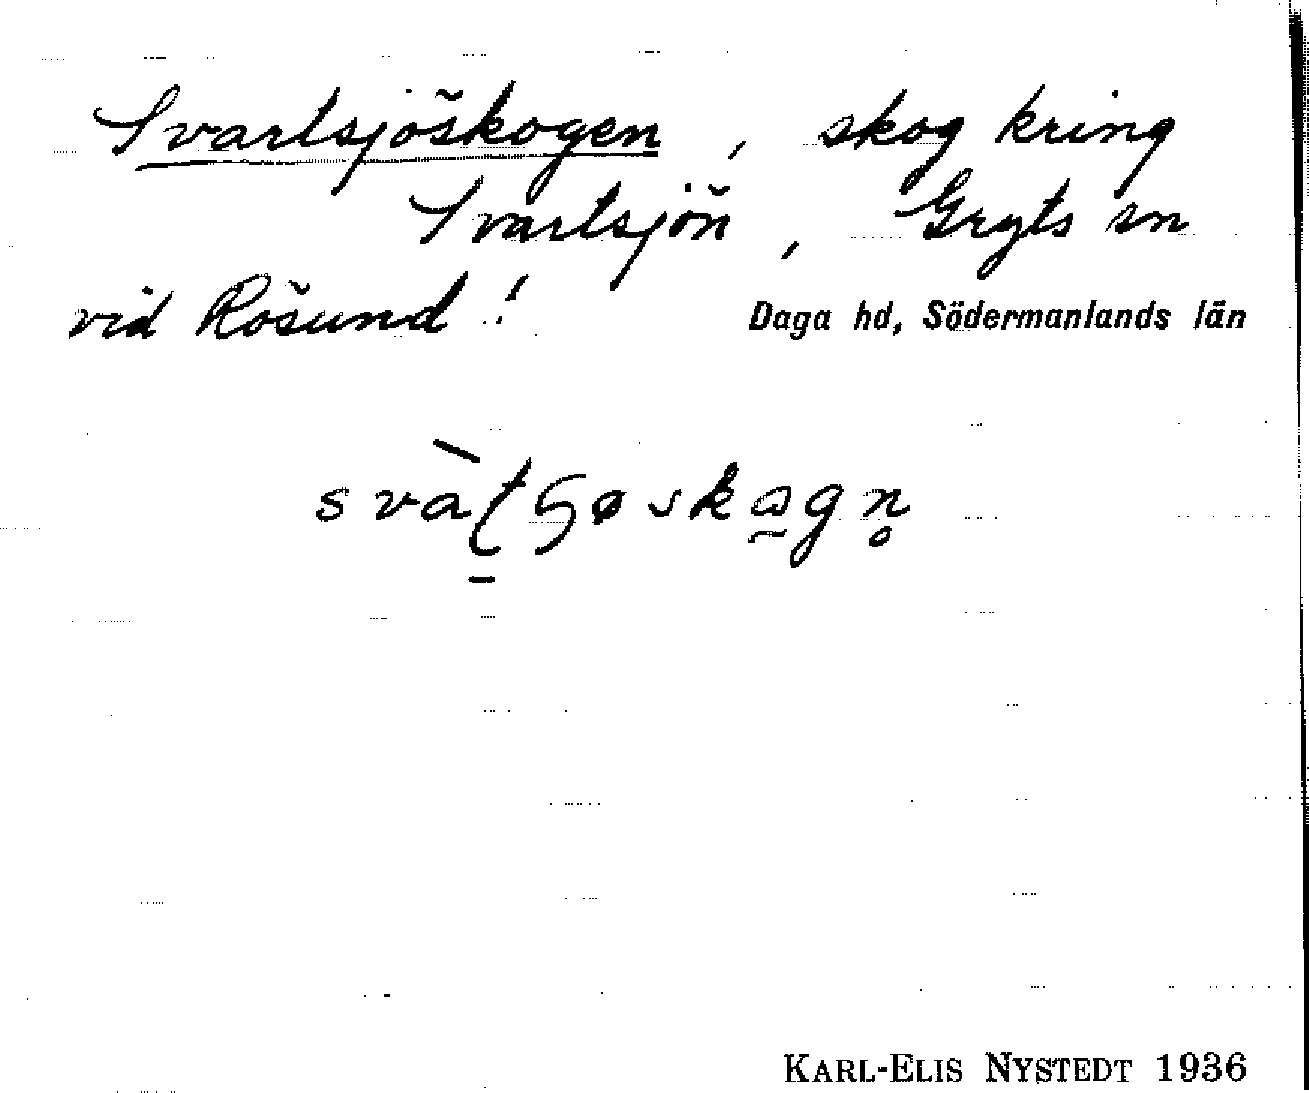 Svartsjöskogen, skog kring
Svartsjön, Gryts sn
vid Rösund!
Daga hd, Södermanlands län
KARL-ELIS NYSTEDT 1936